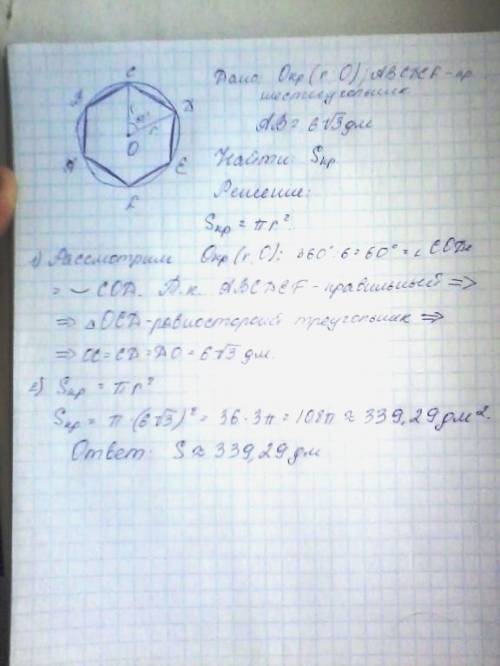 C
B
D
60°
r
r
O
A
E
F
Дано: Окр (r. O); ABCDEF – пр.
шестиугольник
AB = 6√3 дм
Найти: Sкр
Решение:
Sкр = πr².
1) Рассмотрим Окр (r, O): 360°:6 = 60° = ∠COD =
= ◡ COD. Т.к. ABCDEF – правильный =>
=> △OCD – равносторонний треугольник =>
=> OC = CD = DO = 6√3 дм.
2) Sкр = πr²
Sкр = π (6√3)² = 36·3π = 108π ≈ 339,29 дм².
Ответ: S ≈ 339,29 дм